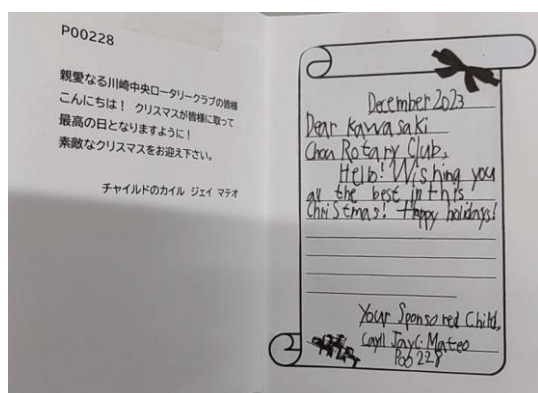 P00228
親愛なる川崎中央ロータリークラブの皆様
こんにちは！ クリスマスが皆様に取って
最高の日となりますように！
素敵なクリスマスをお迎え下さい。
チャイルドのカイル ジェイ マテオ
December 2023
Dear Kawasaki
Chou Rotary Club,
Hello! Wishing you
all the best in this
Christmas! Happy holidays!
Your Sponsored Child,
Cayll Jayc. Mateo
P00228